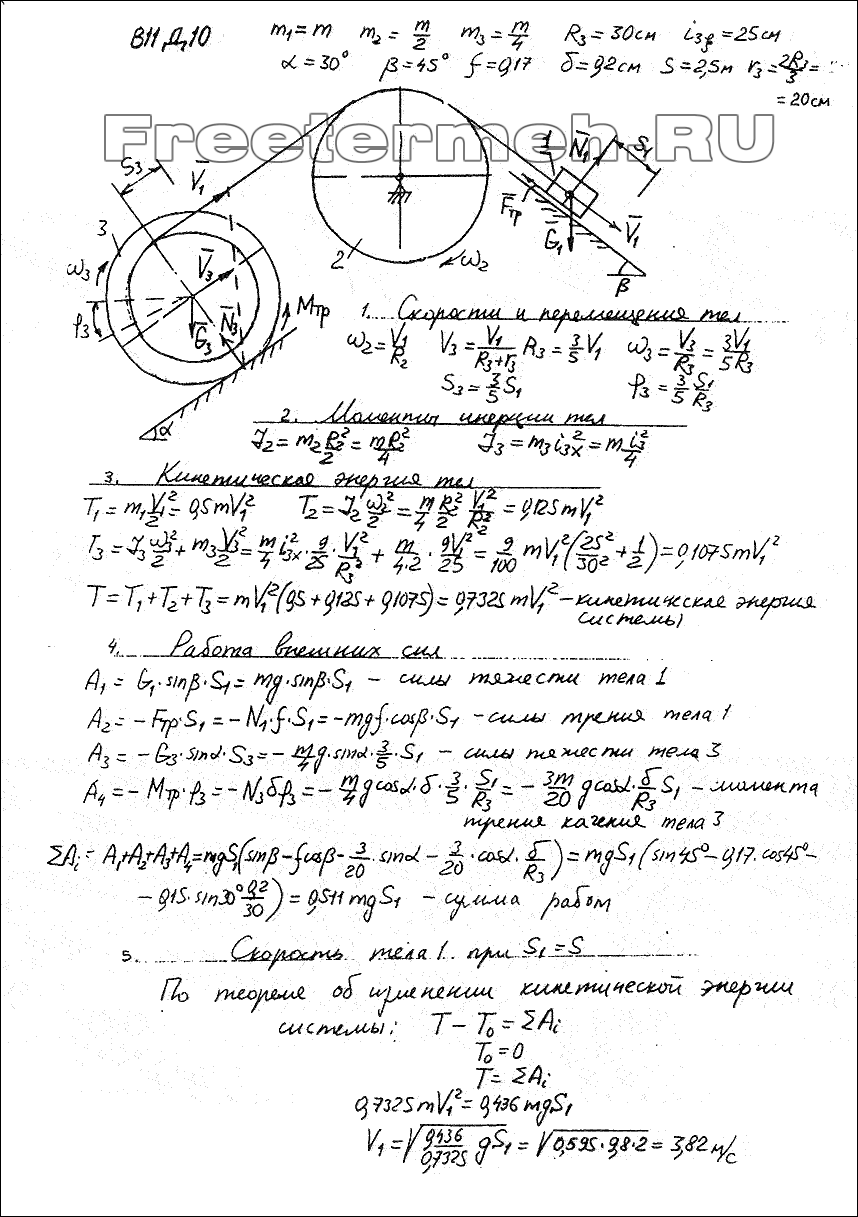 В11, Д10 m₁ = m m₂ = m/2 m₃ = m/4 R₃ = 30см i₃ᵩ = 25см
α = 30° β = 45° f = 0,17 δ = 0,2см S = 2,5м r₃ = 2R₃/3 =
= 20см
Freetermeh.RU
S₃ V̄₁ 1 N̄₁ S₁
3 V̄₃ F̄тр Ḡ₁ V̄₁
ω₃ 2 ω₂ β
φ₃ Ḡ₃ N̄₃ Mтр
α
1. Скорости и перемещения тел
ω₂ = V₁/R₂ V₃ = V₁/(R₃+r₃) R₃ = 3/5 V₁ ω₃ = V₃/R₃ = 3V₁/5R₃
S₃ = 3/5 S₁ φ₃ = 3/5 S₁/R₃
2. Моменты инерции тел
J₂ = m₂R₂²/2 = mR₂²/4 J₃ = m₃i₃ₓ² = m i₃²/4
3. Кинетическая энергия тел
T₁ = m₁V₁²/2 = 0,5mV₁² T₂ = J₂ω₂²/2 = m/4 R₂²/2 V₁²/R₂² = 0,125mV₁²
T₃ = J₃ω₃²/2 + m₃V₃²/2 = m/4 i₃ₓ² · 9/25 · V₁²/R₃² + m/4·2 · 9V₁²/25 = 9/100 mV₁²(25²/30² + 1/2) = 0,1075mV₁²
T = T₁+T₂+T₃ = mV₁²(0,5+0,125+0,1075) = 0,7325mV₁² – кинетическая энергия
системы
4. Работа внешних сил
A₁ = G₁·sinβ·S₁ = mg·sinβ·S₁ – силы тяжести тела 1
A₂ = –Fтр·S₁ = –N₁·f·S₁ = –mgf·cosβ·S₁ – силы трения тела 1
A₃ = –G₃·sinα·S₃ = –m/4 g·sinα·3/5·S₁ – силы тяжести тела 3
A₄ = –Mтр·φ₃ = –N₃δφ₃ = –m/4 gcosα·δ·3/5·S₁/R₃ = –3m/20 gcosα·δ/R₃ S₁ – момента
трения качения тела 3
ΣAᵢ = A₁+A₂+A₃+A₄ = mgS₁(sinβ–fcosβ–3/20·sinα–3/20·cosα·δ/R₃) = mgS₁(sin45°–0,17·cos45°–
–0,15·sin30° 0,2/30) = 0,511mgS₁ – сумма работ
5. Скорость тела 1 при S₁ = S
По теореме об изменении кинетической энергии
системы: T – T₀ = ΣAᵢ
T₀ = 0
T = ΣAᵢ
0,7325mV₁² = 0,436mgS₁
V₁ = √(0,436/0,7325 gS₁) = √(0,595·9,8·2) = 3,82 м/с